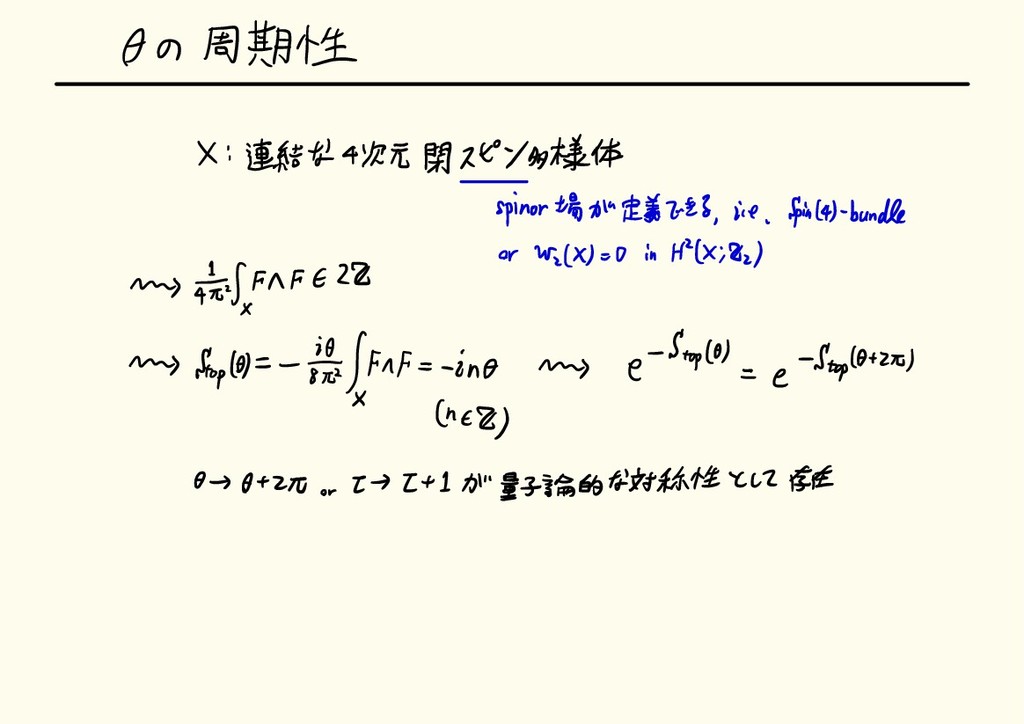 θの周期性
X: 連結な4次元閉スピン多様体
spinor場が定義できる, i.e. Spin(4)-bundle
or w₂(X)=0 in H²(X;ℤ₂)
⇝ 1/4π² ∫_X F∧F ∈ 2ℤ
⇝ S_top(θ) = - iθ/8π² ∫_X F∧F = -inθ ⇝ e^{-S_top(θ)} = e^{-S_top(θ+2π)}
(n∈ℤ)
θ→θ+2π or τ→τ+1 が量子論的な対称性として存在